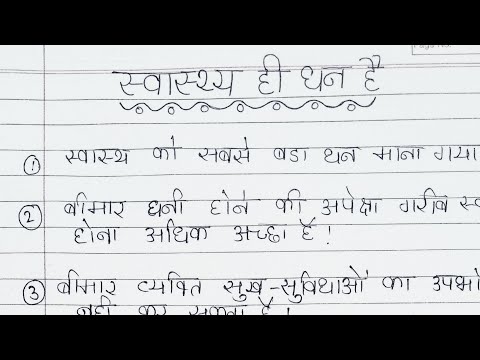 स्वास्थ्य ही धन है
① स्वास्थ को सबसे बडा धन माना गया
② बीमार धनी होने की अपेक्षा गरीब स्व
होना अधिक अच्छा है!
③ बीमार व्यक्ति सुख-सुविधाओं का उपभो
नहीं कर सकता है!